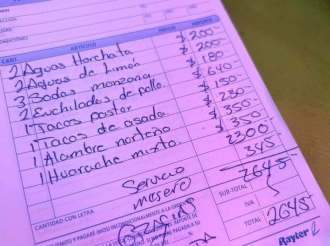 CANT. ARTICULO PRECIO IMPORTE
2 Aguas Horchata $ 200-
2 Aguas de Limón $ 200-
3 Sodas manzana $ 180
2 Enchiladas de pollo $ 640-
1 Tacos pastor $ 150-
1 Tacos de asada $ 230-
1 Alambre norteño $ 350-
1 Huarache mixto. $ 350-
2300
Servicio 345
mesero
2645
CANTIDAD CON LETRA SUB-TOTAL
IVA
TOTAL 2645